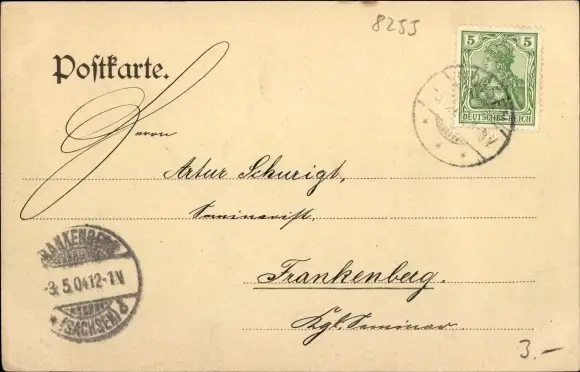 8255
5 5
DEUTSCHES REICH
Postkarte.
Herrn
Artur Schurigt,
Seminarist.
Frankenberg.
Kgl. Seminar
FRANKENBERG
-3.5.04.12-1.N
* (SACHSEN) d
3.-